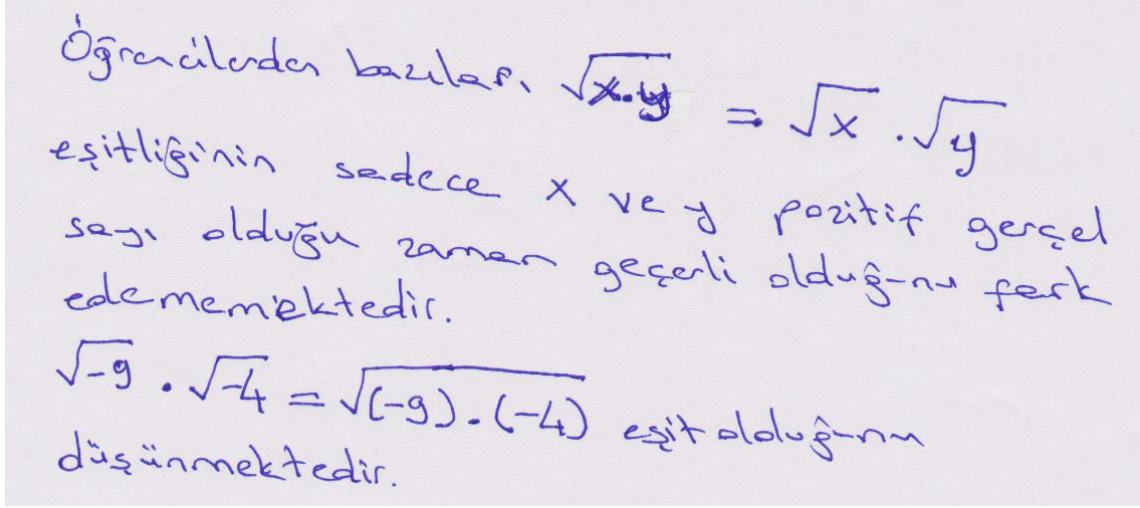 Öğrencilerden bazıları √x.y = √x . √y
eşitliğinin sadece x ve y pozitif gerçel
sayı olduğu zaman geçerli olduğunu fark
edememektedir.
√-9 . √-4 = √(-9).(-4) eşit olduğunu
düşünmektedir.